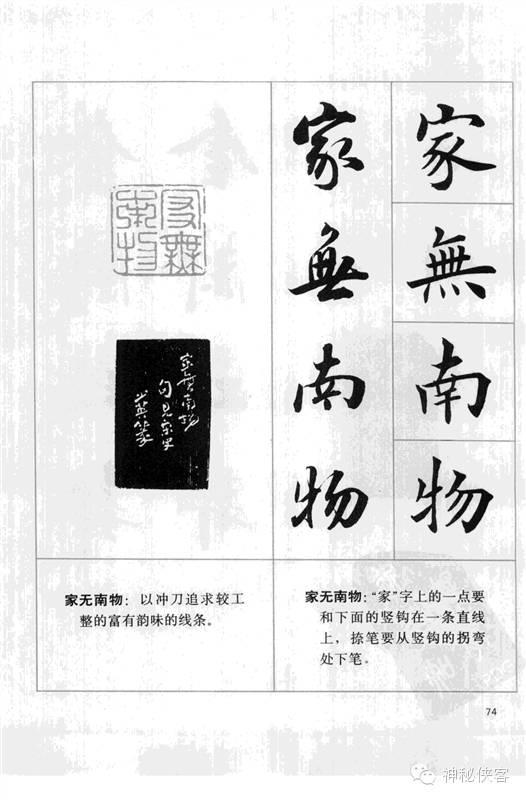 家無南物
家無南物
家無南物
家無南物
句見宋史
家无南物：以冲刀追求较工
整的富有韵味的线条。
家无南物：“家”字上的一点要
和下面的竖钩在一条直线
上，捺笔要从竖钩的拐弯
处下笔。
74
神秘侠客